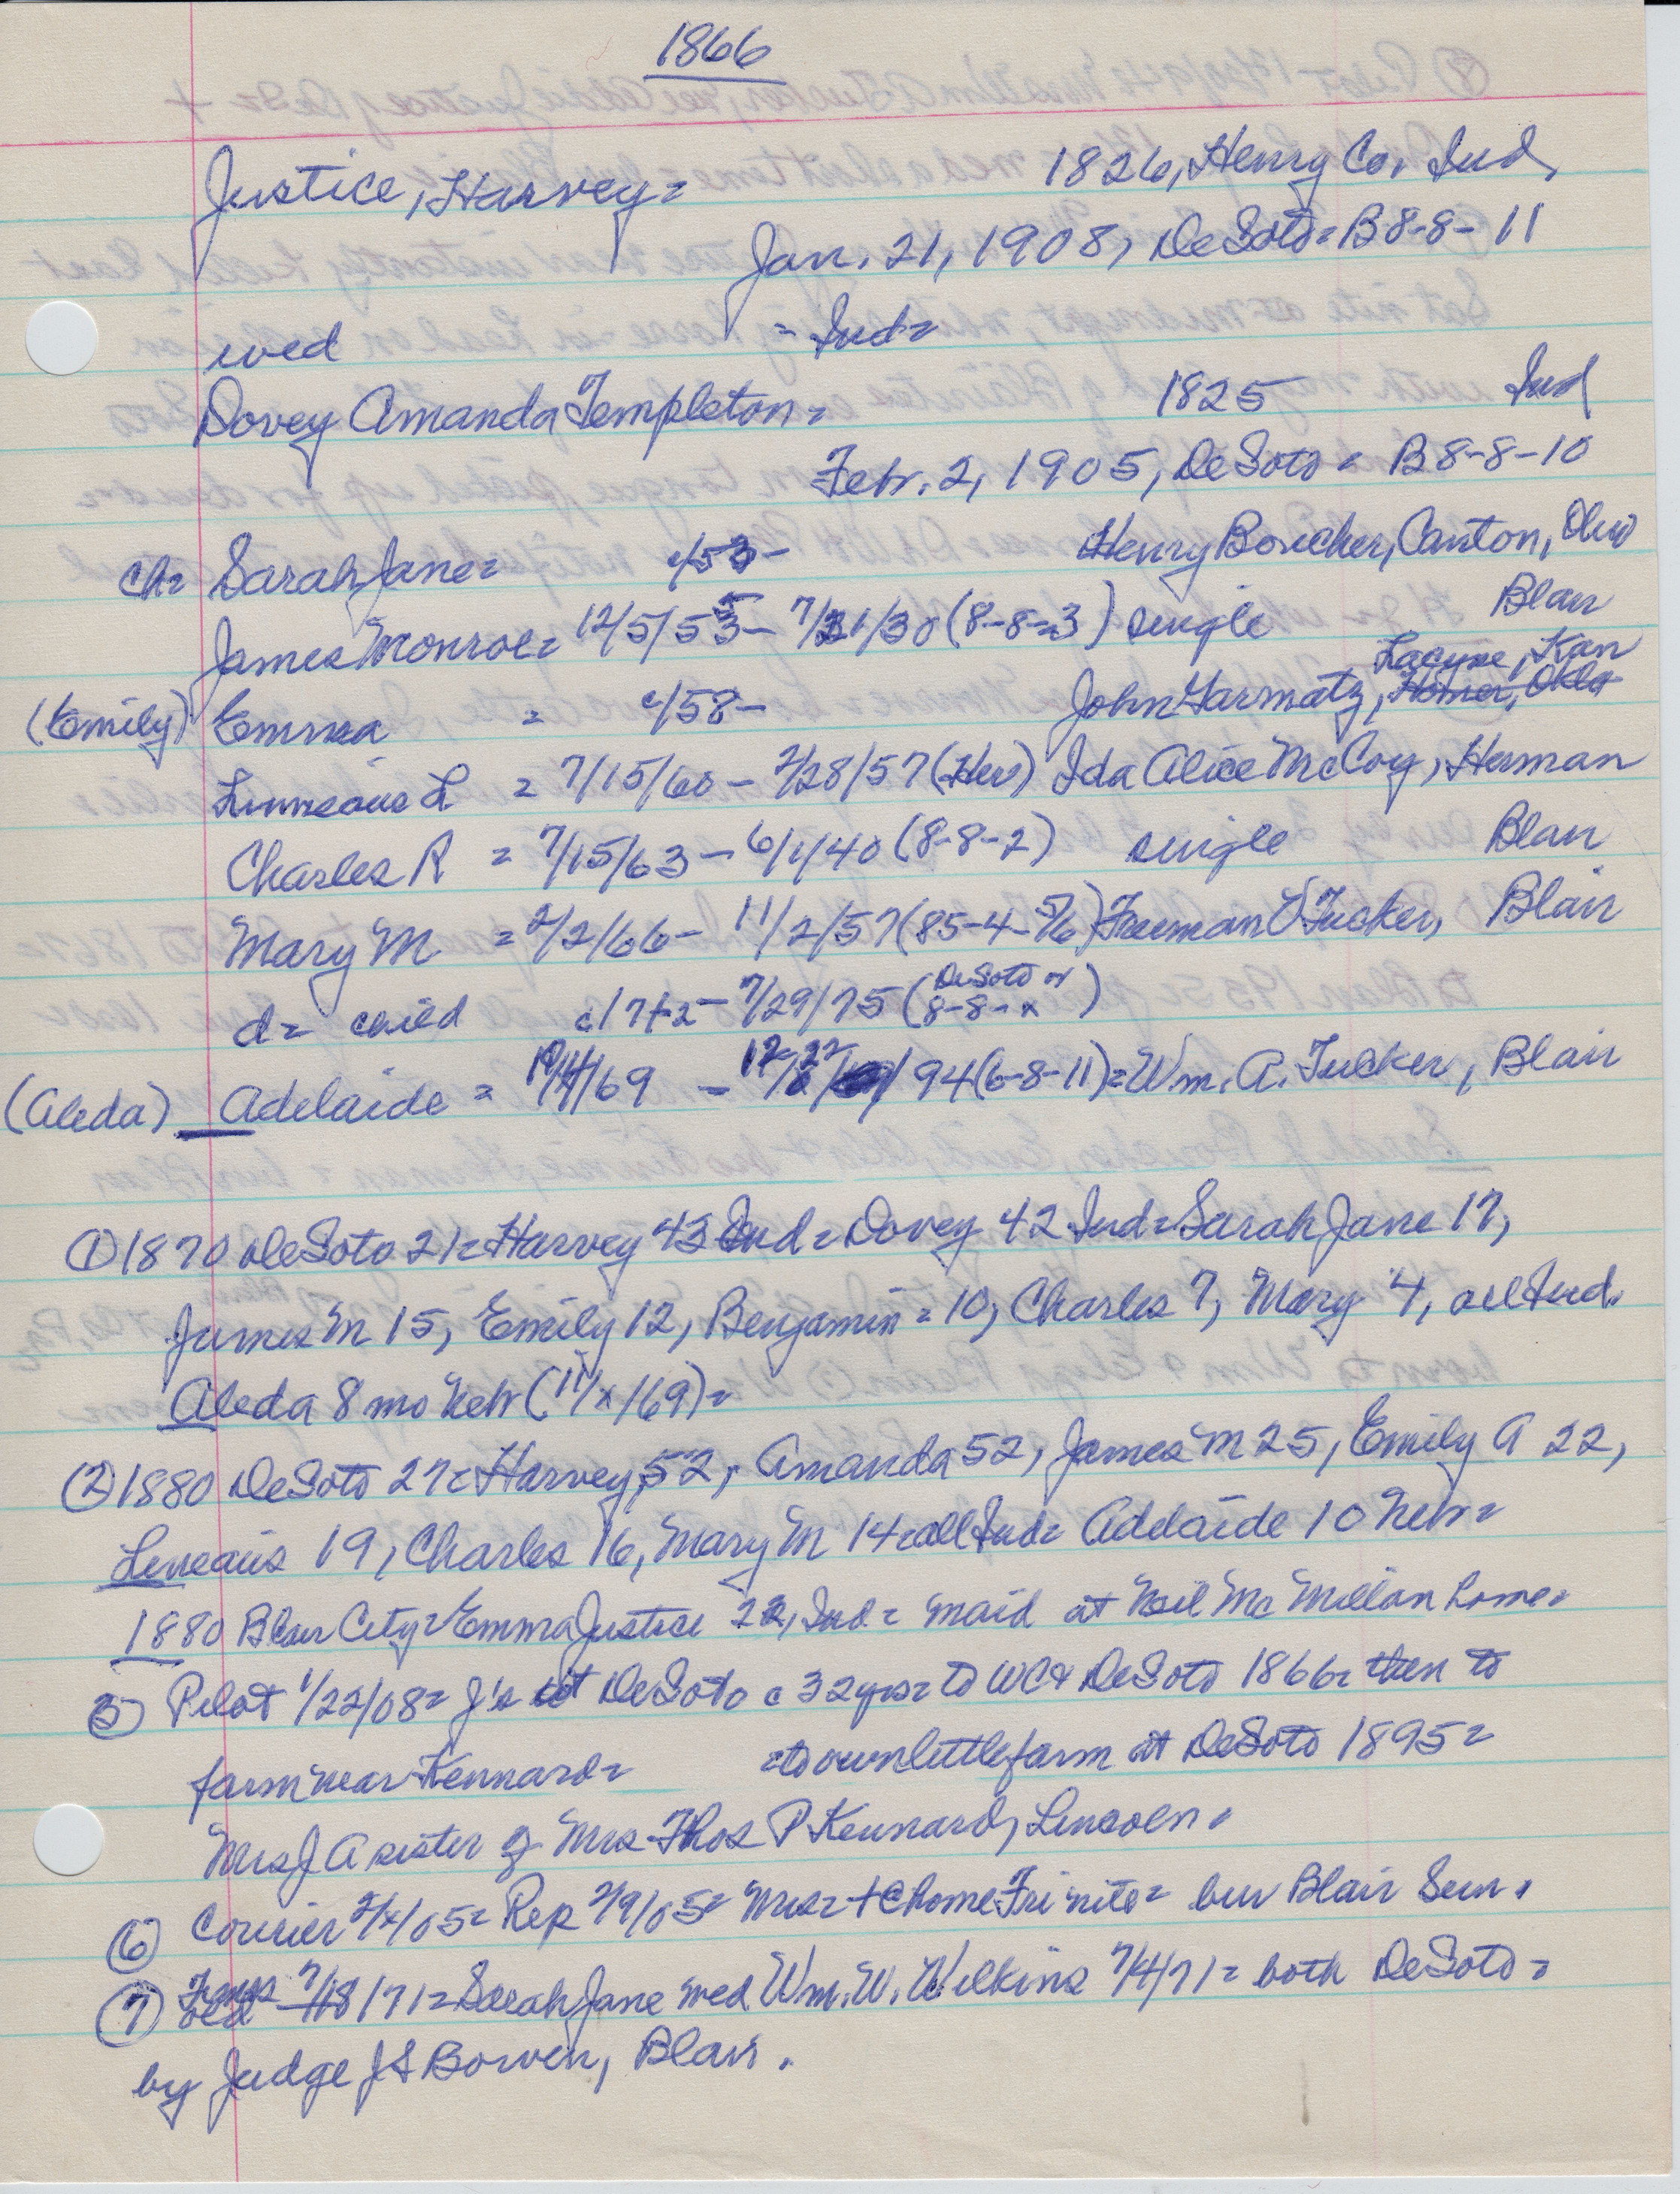 1866
Justice, Harvey = 1826, Henry Co, Ind,
Jan. 21, 1908, DeSoto = B 8-8-11
wed = Ind =
Dovey Amanda Templeton = 1825 Ind
Febr. 2, 1905, DeSoto = B 8-8-10
ch = Sarah Jane = c/53 - Henry Boucher, Canton, Ohio
James Monroe = 12/5/55 - 7/21/30 (8-8-3) single Blair
Lacyne, Kan
(Emily) Emma = c/58 - John Garmatz, Homer, Okla
Linneaus L = 7/15/60 - 2/28/57 (Her) Ida Alice McCoy, Herman
Charles R = 7/15/63 - 6/1/40 (8-8-2) single Blair
Mary M = 2/2/66 - 11/2/57 (85-4-5/6) Freeman O Tucker, Blair
d = child c/7+2 - 7/29/75 (DeSoto or 8-8-x)
(Aleda) Adelaide = /69 - 12/22/94 (6-8-11) = Wm. A. Tucker, Blair
(1) 1870 DeSoto 21 = Harvey 43 Ind = Dovey 42 Ind = Sarah Jane 17,
James M 15, Emily 12, Benjamin = 10, Charles 7, Mary 4, all Ind.
Aleda 8 mo Nebr (11/x/69) =
(2) 1880 DeSoto 27 = Harvey 52, Amanda 52, James M 25, Emily A 22,
Lineaus 19, Charles 16, Mary M 14 = all Ind = Adelaide 10 Nebr =
1880 Blair City = Emma Justice 22, Ind. = maid at Neil McMillan home =
(5) Pilot 1/22/08 = J's at DeSoto c 32 yrs = to WC & DeSoto 1866 = then to
farm near Kennard = = to own little farm at DeSoto 1895 =
Mrs J A sister of Mrs Thos P Kennard, Lincoln =
(6) Courier 2/x/05 = Rep 2/9/05 = Mrs = + @ home Fri nite = bur Blair Sun.
(7) Times 7/18/71 = Sarah Jane wed Wm. W. Wilkins 7/4/71 = both DeSoto =
by Judge J S Bowen, Blair.